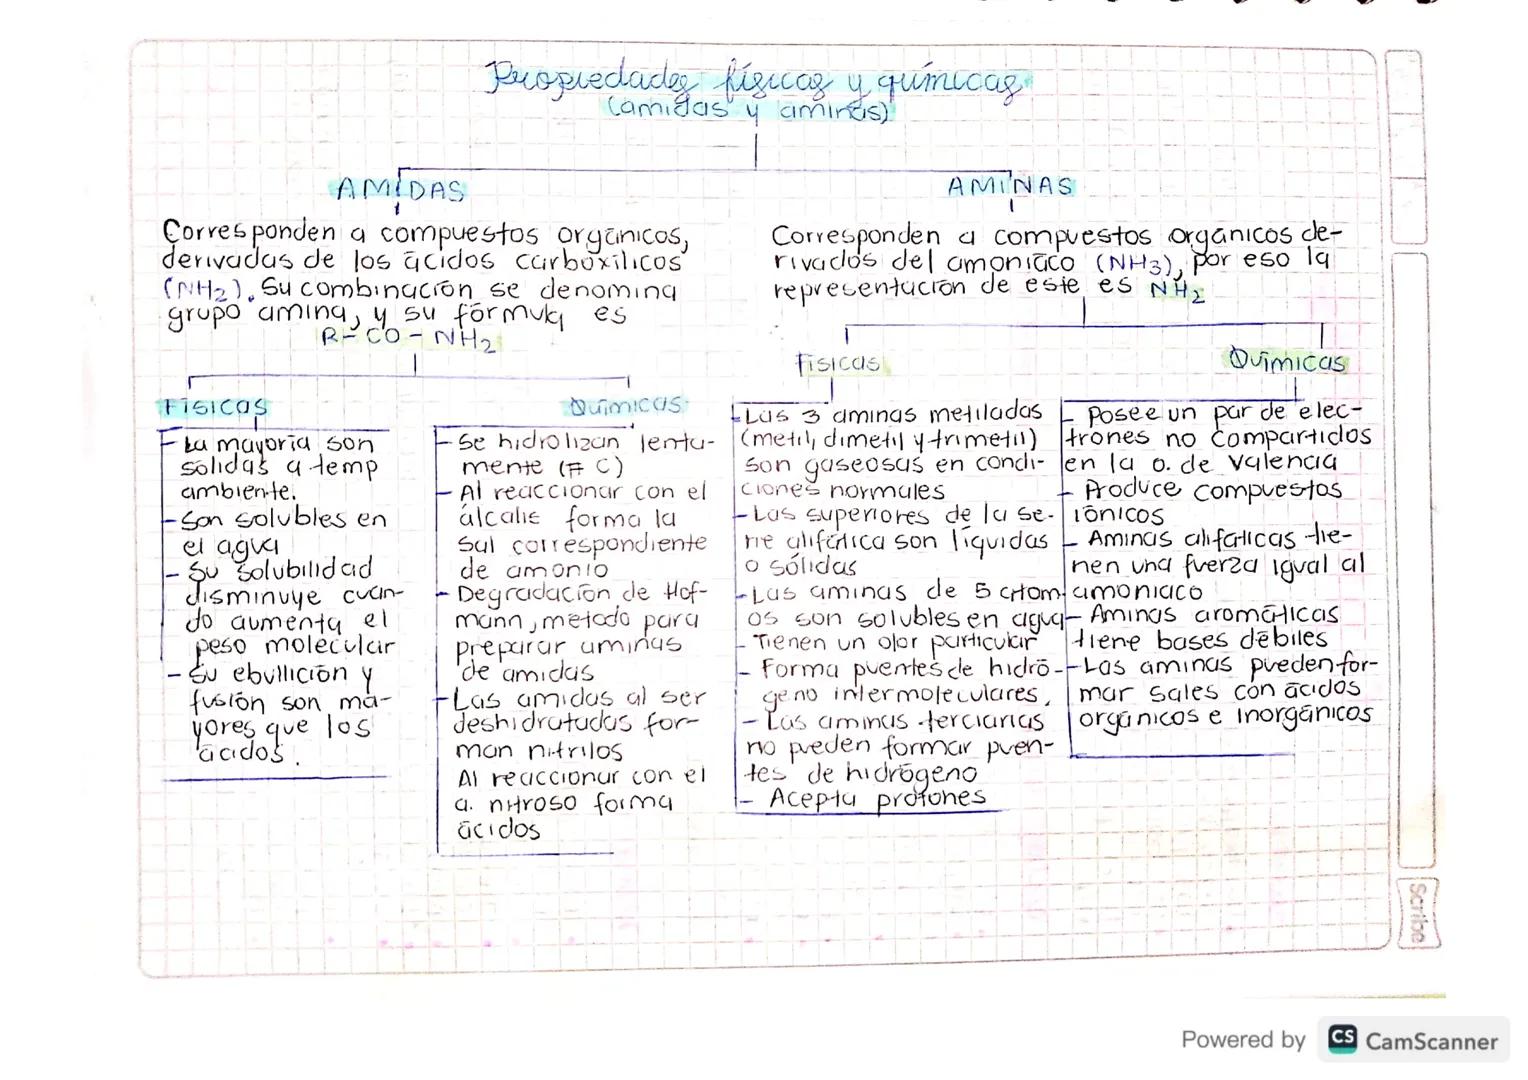 Propiedades físicas y químicas
(amidas y aminas)
AMIDAS
Corresponden a compuestos orgánicos,
derivadas de los ácidos carboxílicos
(NH2). Su combinación se denomina
grupo amina, y su fórmula es
R-CO-NH2
Físicas
- La mayoría son
sólidas a temp
ambiente.
- Son solubles en
el agua
- Su solubilidad
disminuye cuan-
do aumenta el
peso molecular
- Su ebullición y
fusión son ma-
yores que los
ácidos.
Químicas
- Se hidrolizan lenta-
mente
- Al reaccionar con el
álcalis forma la
sal correspondiente
de amonio
- Degradación de Hof-
mann, metodo para
preparar aminas
de amidas
- Las amidas al ser
deshidratadas for-
man nitrilos
Al reaccionar con el
a. nitroso forma
ácidos
AMINAS
Corresponden a compuestos orgánicos de-
rivados del amoniáco (NH3), por eso la
representación de este es NH2
Físicas
- Las 3 aminas metiladas
(metil, dimetil y trimetil)
son gaseosas en condi-
ciones normales
- Las superiores de la se-
rie alifática son líquidas
o sólidas
- Las aminas de 5 átom
os son solubles en agua
- Tienen un olor particular
- Forma puentes de hidró-
geno intermoleculares.
- Las aminas terciarias
no pueden formar puen-
tes de hidrógeno
- Acepta protones
Químicas
- Posee un par de elec-
trones no compartidos
en la o. de valencia
- Produce compuestos
iónicos
- Aminas alifaticas tie-
nen una fuerza igual al
amoniaco
- Aminas aromáticas
tiene bases débiles
- Las aminas pueden for-
mar sales con ácidos
orgánicos e inorgánicos
Scribe
Powered by CS CamScanner